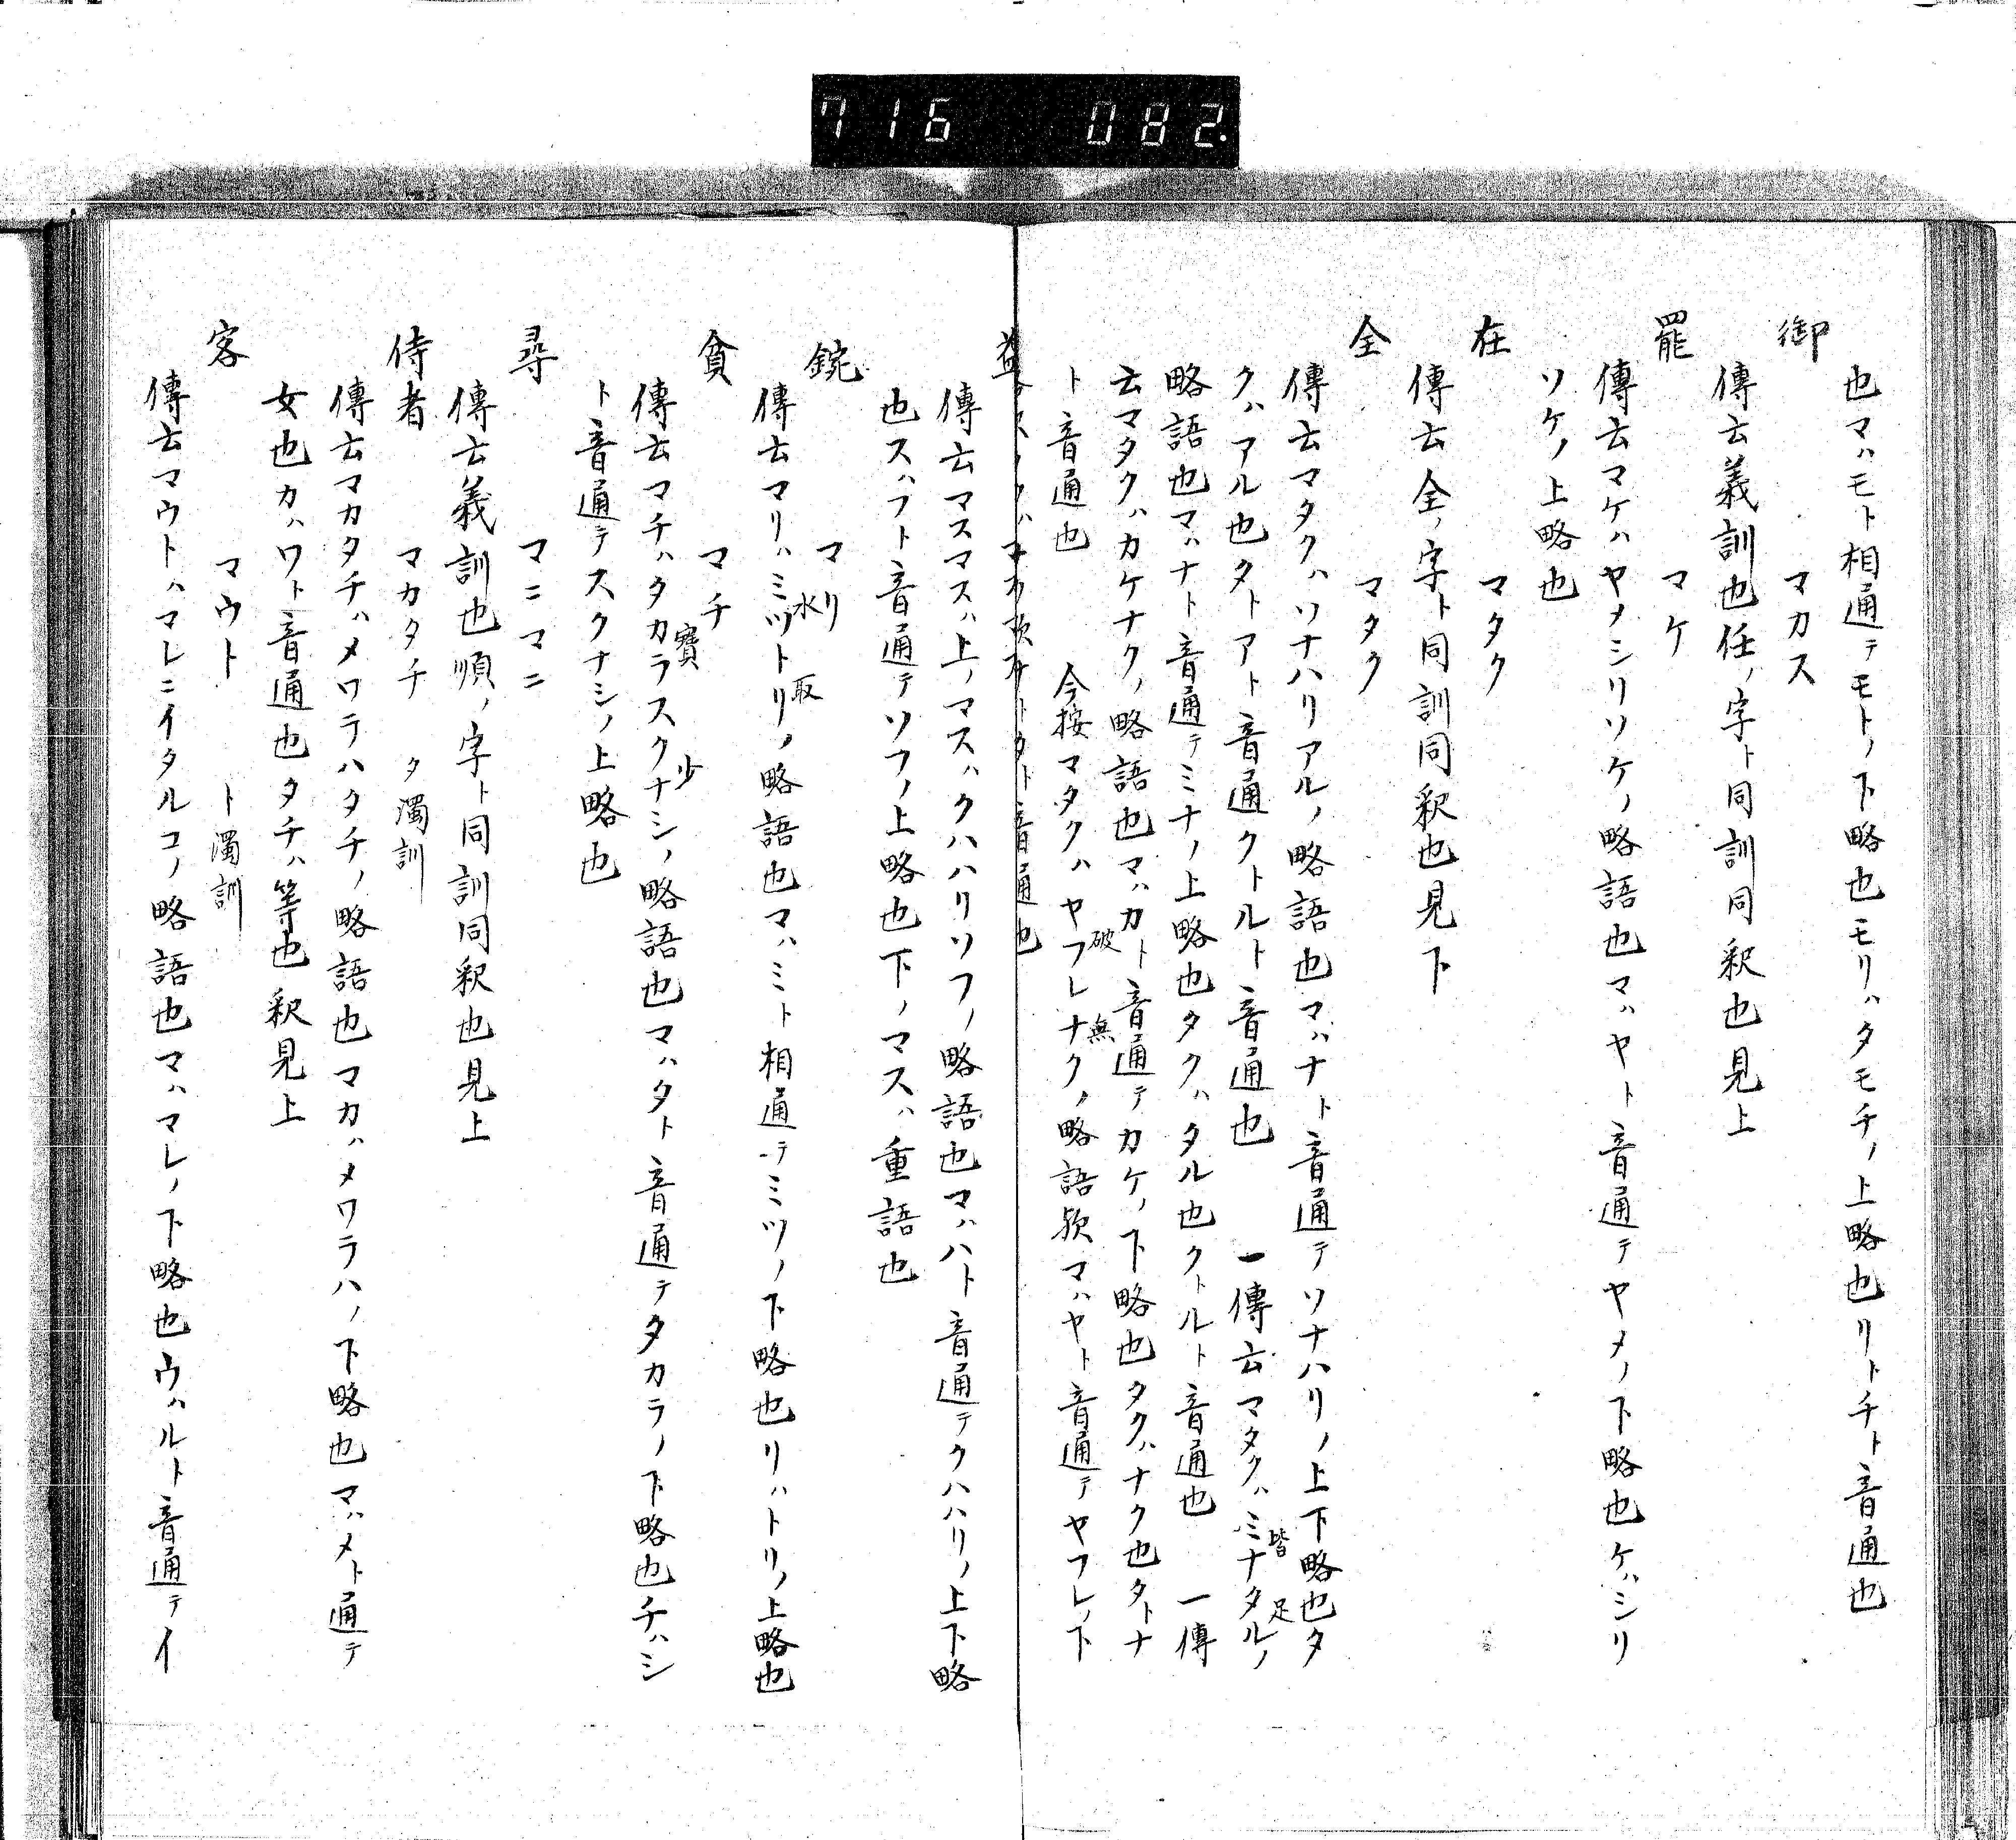 716 082.
也マハモト相通テモトノ下略也モリハタモチノ上略也リトチト音通也
御 マカス
傳云義訓也任ノ字ト同訓同釈也見上
罷 マケ
傳云マケハヤメシリソケノ略語也マハヤト音通テヤメノ下略也ケハシリ
ソケノ上略也
在 マタク
傳云全ノ字ト同訓同釈也見下
全 マタク
傳云マタクハソナハリアルノ略語也マハナト音通テソナハリノ上下略也タ
クハアル也タトアト音通クトルト音通也 一傳云マタクハミナ皆タル足ノ
略語也マハナト音通テミナノ上略也タクハタル也クトルト音通也 一傳
云マタクハカケナクノ略語也マハカト音通テカケノ下略也タクハナク也タトナ
ト音通也 今按マタクハヤフレ破ナク無ノ略語歟マハヤト音通テヤフレノ下
益
傳云マスマスハ上ノマスハクハハリソフノ略語也マハハト音通テクハハリノ上下略
也スハフト音通テソフノ上略也下ノマスハ重語也
鋺 マリ
傳云マリハミツ水トリ取ノ略語也マハミト相通テミツノ下略也リハトリノ上略也
貧 マチ
傳云マチハタカラ寳スクナシ少ノ略語也マハタト音通テタカラノ下略也チハシ
ト音通テスクナシノ上略也
尋 マニマニ
傳云義訓也順ノ字ト同訓同釈也見上
侍者 マカタチ タ濁訓
傳云マカタチハメワラハタチノ略語也マカハメワラハノ下略也マハメト通テ
女也カハワト音通也タチハ等也釈見上
客 マウト ト濁訓
傳云マウトハマレニイタルコノ略語也マハマレノ下略也ウハルト音通テイ